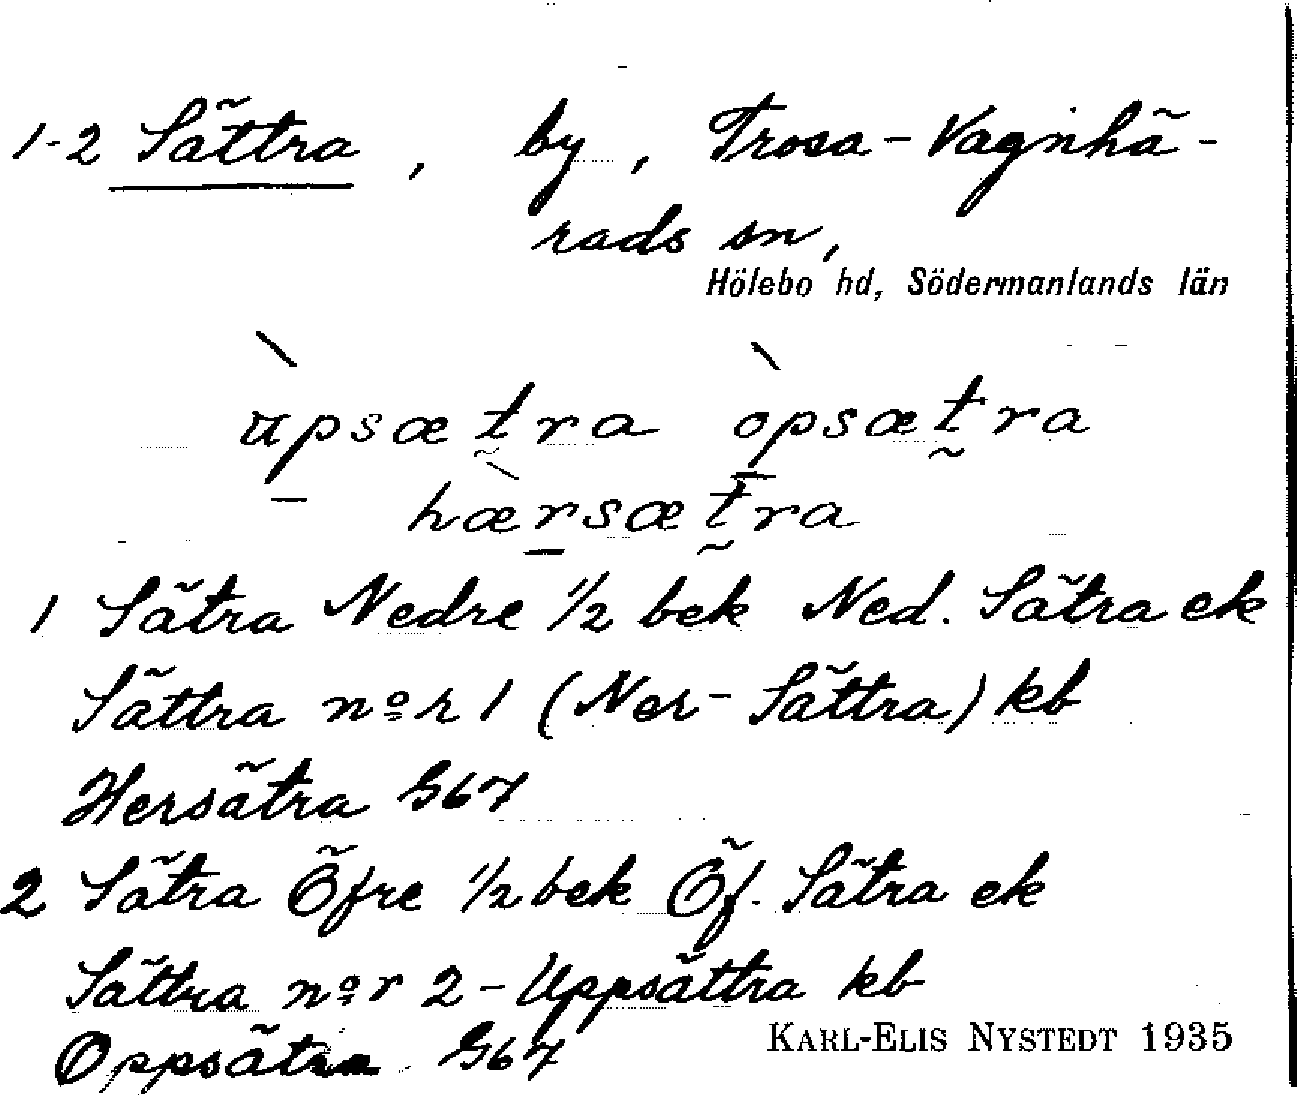 1-2 Sättra, by, Trosa-Vagnhä-
rads sn,
Hölebo hd, Södermanlands län
ùpsætra òpsætra
hæ̀rsætra
1 Sätra Nedre 1/2 bek Ned. Sätra ek
Sättra n:o r 1 (Ner-Sättra) kb
Hersätra G67
2 Sätra Öfre 1/2 bek Öf. Sätra ek
Sättra n:o r 2 - Uppsättra kb
Oppsätra G67
KARL-ELIS NYSTEDT 1935